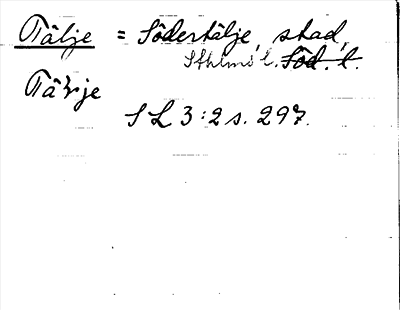 Tälje = Södertälje, stad,
Sthlms l. Söd. l.
Tälje
SL 3:2 s. 297.